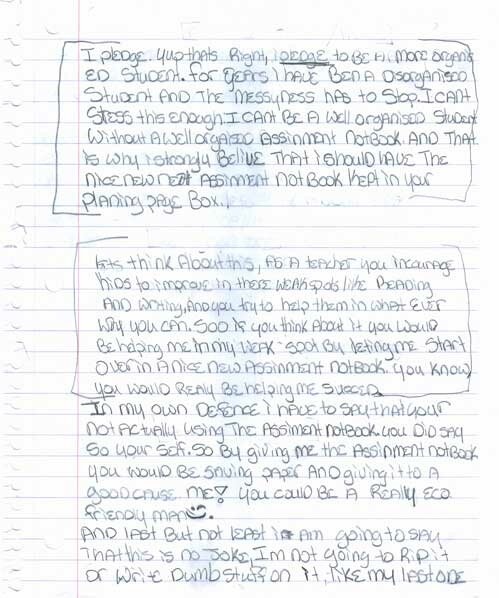 I pledge. Yup thats Right, I pledge to BE A more organis
ED Student. For years I have BEN A Disorganised
Student AND The messyness has to Stop. I CANT
Stess this enough. I CANT BE A Well organised Student
Without A Well orgaised Assinment NotBook. AND That
is why i strongly Belive That i should have The
nice new neat Assinment NotBook kept in your
planing page Box.
lets think About this, As A teacher you incourage
kids to improve in there weak spots like Reading
AND writing, And you try to help them in what Ever
way you can. Soo if you think About it you would
Be helping me in my weak-spot By leting me Start
Over in A nice new Assinment NotBook. You know
you would Realy Be helping me Sucsed.
In my own Defence i have to say that your
not actually using The Assiment NotBook. you Did say
So your Self. So By giving me the Assinment NotBook
you would BE saving paper AND giving it to A
good cause. ME! you could BE A REally Eco
friendly man.
AND last But not least i am going to say
That this is no Joke, I'm not going to Rip it
or write Dumb stuff on it, like my last one